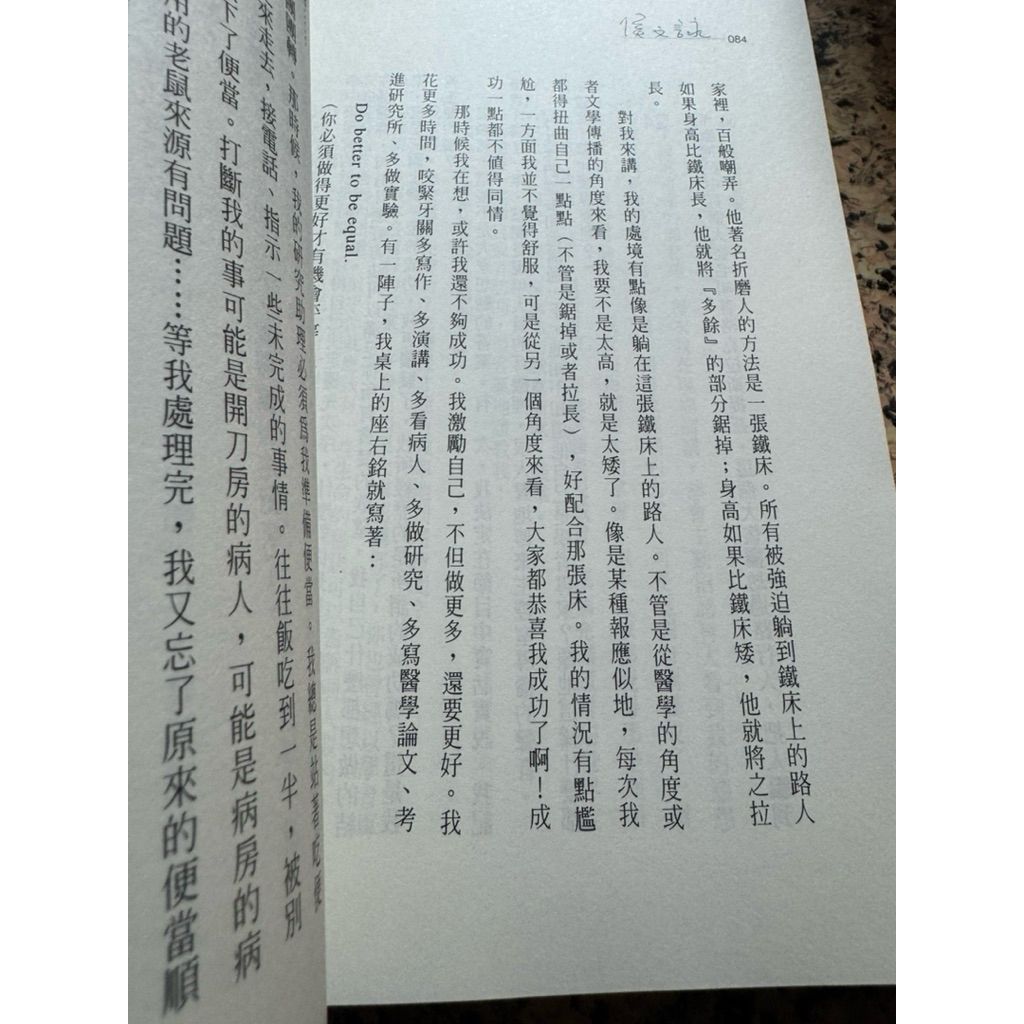 侯文詠
084
家裡，百般嘲弄。他著名折磨人的方法是一張鐵床。所有被強迫躺到鐵床上的路人
如果身高比鐵床長，他就將『多餘』的部分鋸掉；身高如果比鐵床矮，他就將之拉
長。
對我來講，我的處境有點像是躺在這張鐵床上的路人。不管是從醫學的角度或
者文學傳播的角度來看，我要不是太高，就是太矮了。像是某種報應似地，每次我
都得扭曲自己一點點（不管是鋸掉或者拉長），好配合那張床。我的情況有點尷
尬，一方面我並不覺得舒服，可是從另一個角度來看，大家都恭喜我成功了啊！成
功一點都不值得同情。
那時候我在想，或許我還不夠成功。我激勵自己，不但做更多，還要更好。我
花更多時間，咬緊牙關多寫作、多演講、多看病人、多做研究、多寫醫學論文、考
進研究所、多做實驗。有一陣子，我桌上的座右銘就寫著：
Do better to be equal.
（你必須做得更好才有機會
。那時候，我的研究助理必須為我準備便當。我總是站著吃便
來走去，接電話、指示一些未完成的事情。往往飯吃到一半，被別
下了便當。打斷我的事可能是開刀房的病人，可能是病房的病
用的老鼠來源有問題……等我處理完，我又忘了原來的便當順